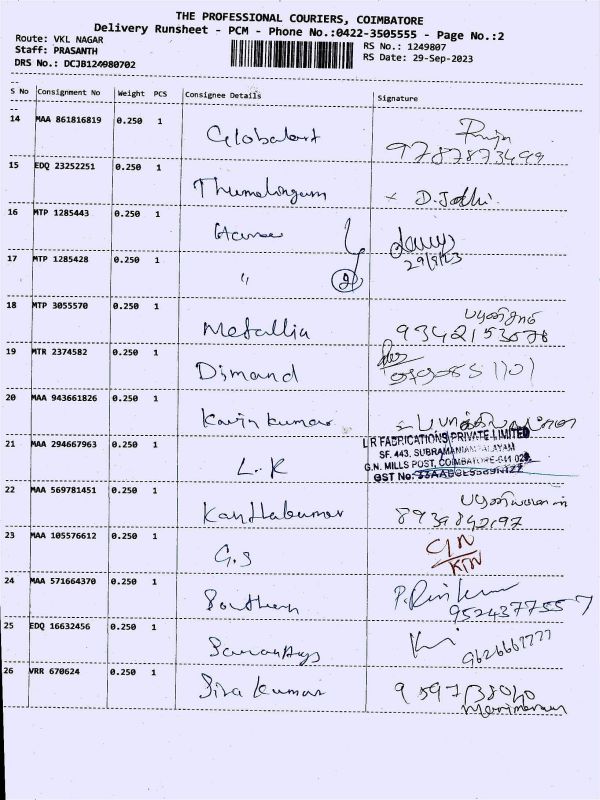 THE PROFESSIONAL COURIERS, COIMBATORE
Delivery Runsheet - PCM - Phone No.:0422-3505555 - Page No.:2
Route: VKL NAGAR
Staff: PRASANTH
DRS No.: DCJB124980702
RS No.: 1249807
RS Date: 29-Sep-2023
S No Consignment No Weight PCS Consignee Details Signature
14 MAA 861816819 0.250 1 Globalart
9787873499
15 EDQ 23252251 0.250 1 D. Jothi
16 MTP 1285443 0.250 1
29/9/23
17 MTP 1285428 0.250 1 " 2
18 MTP 3055570 0.250 1 Metallia
9342153078
19 MTR 2374582 0.250 1 Dimand
20 MAA 943661826 0.250 1 Kavin kumar
21 MAA 294667963 0.250 1 L.K
L R FABRICATIONS PRIVATE LIMITED
SF. 443, SUBRAMANIAMPALAYAM
G.N. MILLS POST, COIMBATORE-641 029.
GST No.
22 MAA 569781451 0.250 1
23 MAA 105576612 0.250 1 G.S
24 MAA 571664370 0.250 1 Southern
9524377557
25 EDQ 16632456 0.250 1
9626667777
26 VRR 670624 0.250 1 Siva Kumar